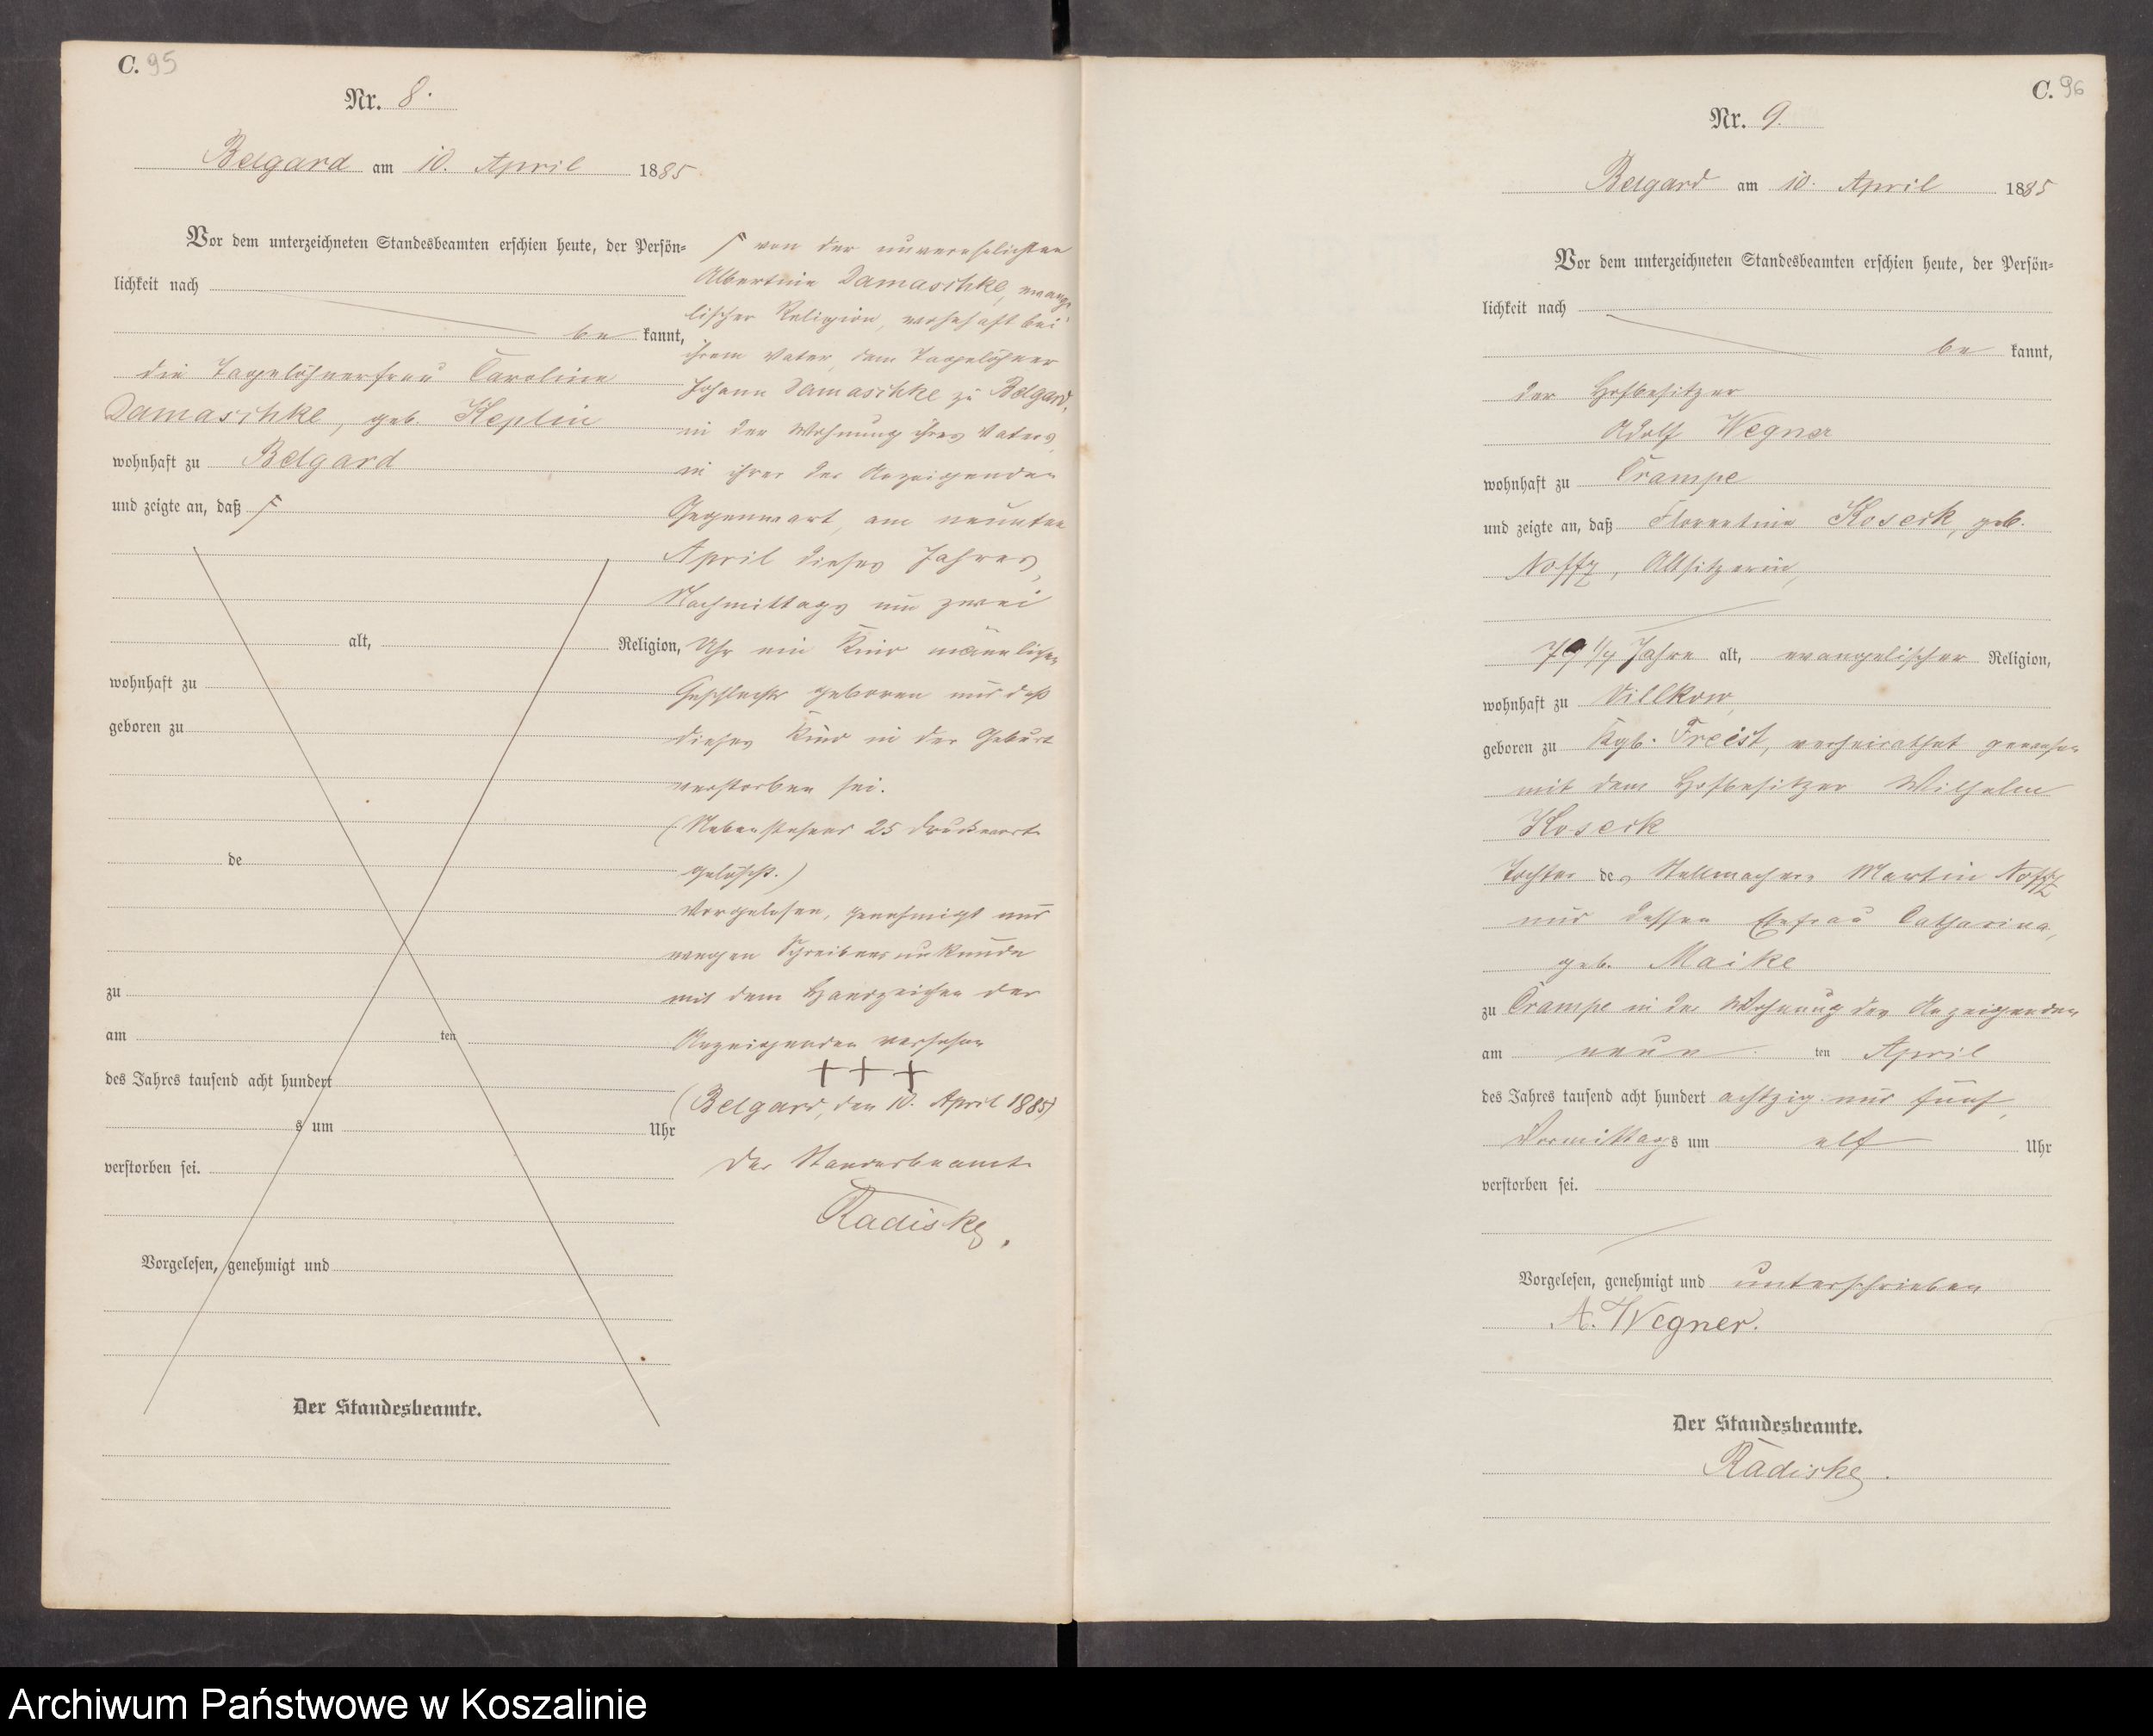 C. 95
Nr. 8.
Belgard am 10. April 1885
Vor dem unterzeichneten Standesbeamten erschien heute, der Persön=
lichkeit nach
be kannt,
die Tagelöhnerfrau Caroline
Damaschke, geb. Keplin
wohnhaft zu Belgard
und zeigte an, daß ſ
alt, Religion,
wohnhaft zu
geboren zu
de
zu
am ten
des Jahres tausend acht hundert
s um Uhr
verstorben sei.
Vorgelesen, genehmigt und
Der Standesbeamte.
ſ von der unverehelichten
Albertine Damaschke, evange
lischer Religion, wohnhaft bei
ihrem Vater, dem Tagelöhner
Johann Damaschke zu Belgard,
in der Wohnung ihres Vaters,
in ihrer der Anzeigenden
Gegenwart, am neunten
April dieses Jahres,
Nachmittags um zwei
Uhr ein Kind männlichen
Geschlechts geboren und daß
dieses Kind in der Geburt
verstorben sei.
(Nebenstehend 25 Druckworte
gelöscht.)
Vorgelesen, genehmigt und
wegen Schreibensunkunde
mit dem Handzeichen der
Anzeigenden versehen
+ + +
(Belgard, den 10. April 1885)
Der Standesbeamte
Radiske.
C. 96
Nr. 9.
Belgard am 10. April 1885
Vor dem unterzeichneten Standesbeamten erschien heute, der Persön=
lichkeit nach
be kannt,
der Hofbesitzer
Adolf Wegner
wohnhaft zu Crampe
und zeigte an, daß Florentine Koseck, geb.
Noffz, Altsitzerin,
79 1/4 Jahre alt, evangelischer Religion,
wohnhaft zu Villkow,
geboren zu Kgb. Freest, verheirathet gewesen
mit dem Hofbesitzer Wilhelm
Koseck
Tochter des Stellmachers Martin Noffz
und dessen Ehefrau Catharina,
geb. Maike
zu Crampe in der Wohnung des Anzeigenden
am neun ten April
des Jahres tausend acht hundert achtzig und fünf,
Vormittags um elf Uhr
verstorben sei.
Vorgelesen, genehmigt und unterschrieben
A. Wegner.
Der Standesbeamte.
Radiske.
Archiwum Państwowe w Koszalinie